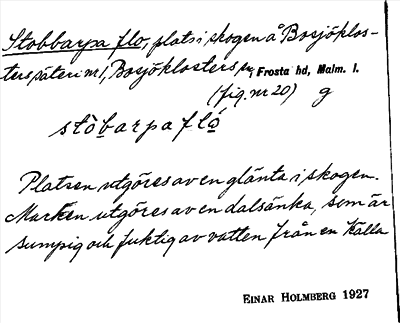 Stobbarpa flo, plats i skogen å Bosjöklos-
ters säteri nr 1, Bosjöklosters sn, Frosta hd, Malm. l.
(fig. nr 20) g
stòbarpa fló
Platsen utgöres av en glänta i skogen.
Marken utgöres av en dalsänka, som är
sumpig och fuktig av vatten från en källa
EINAR HOLMBERG 1927